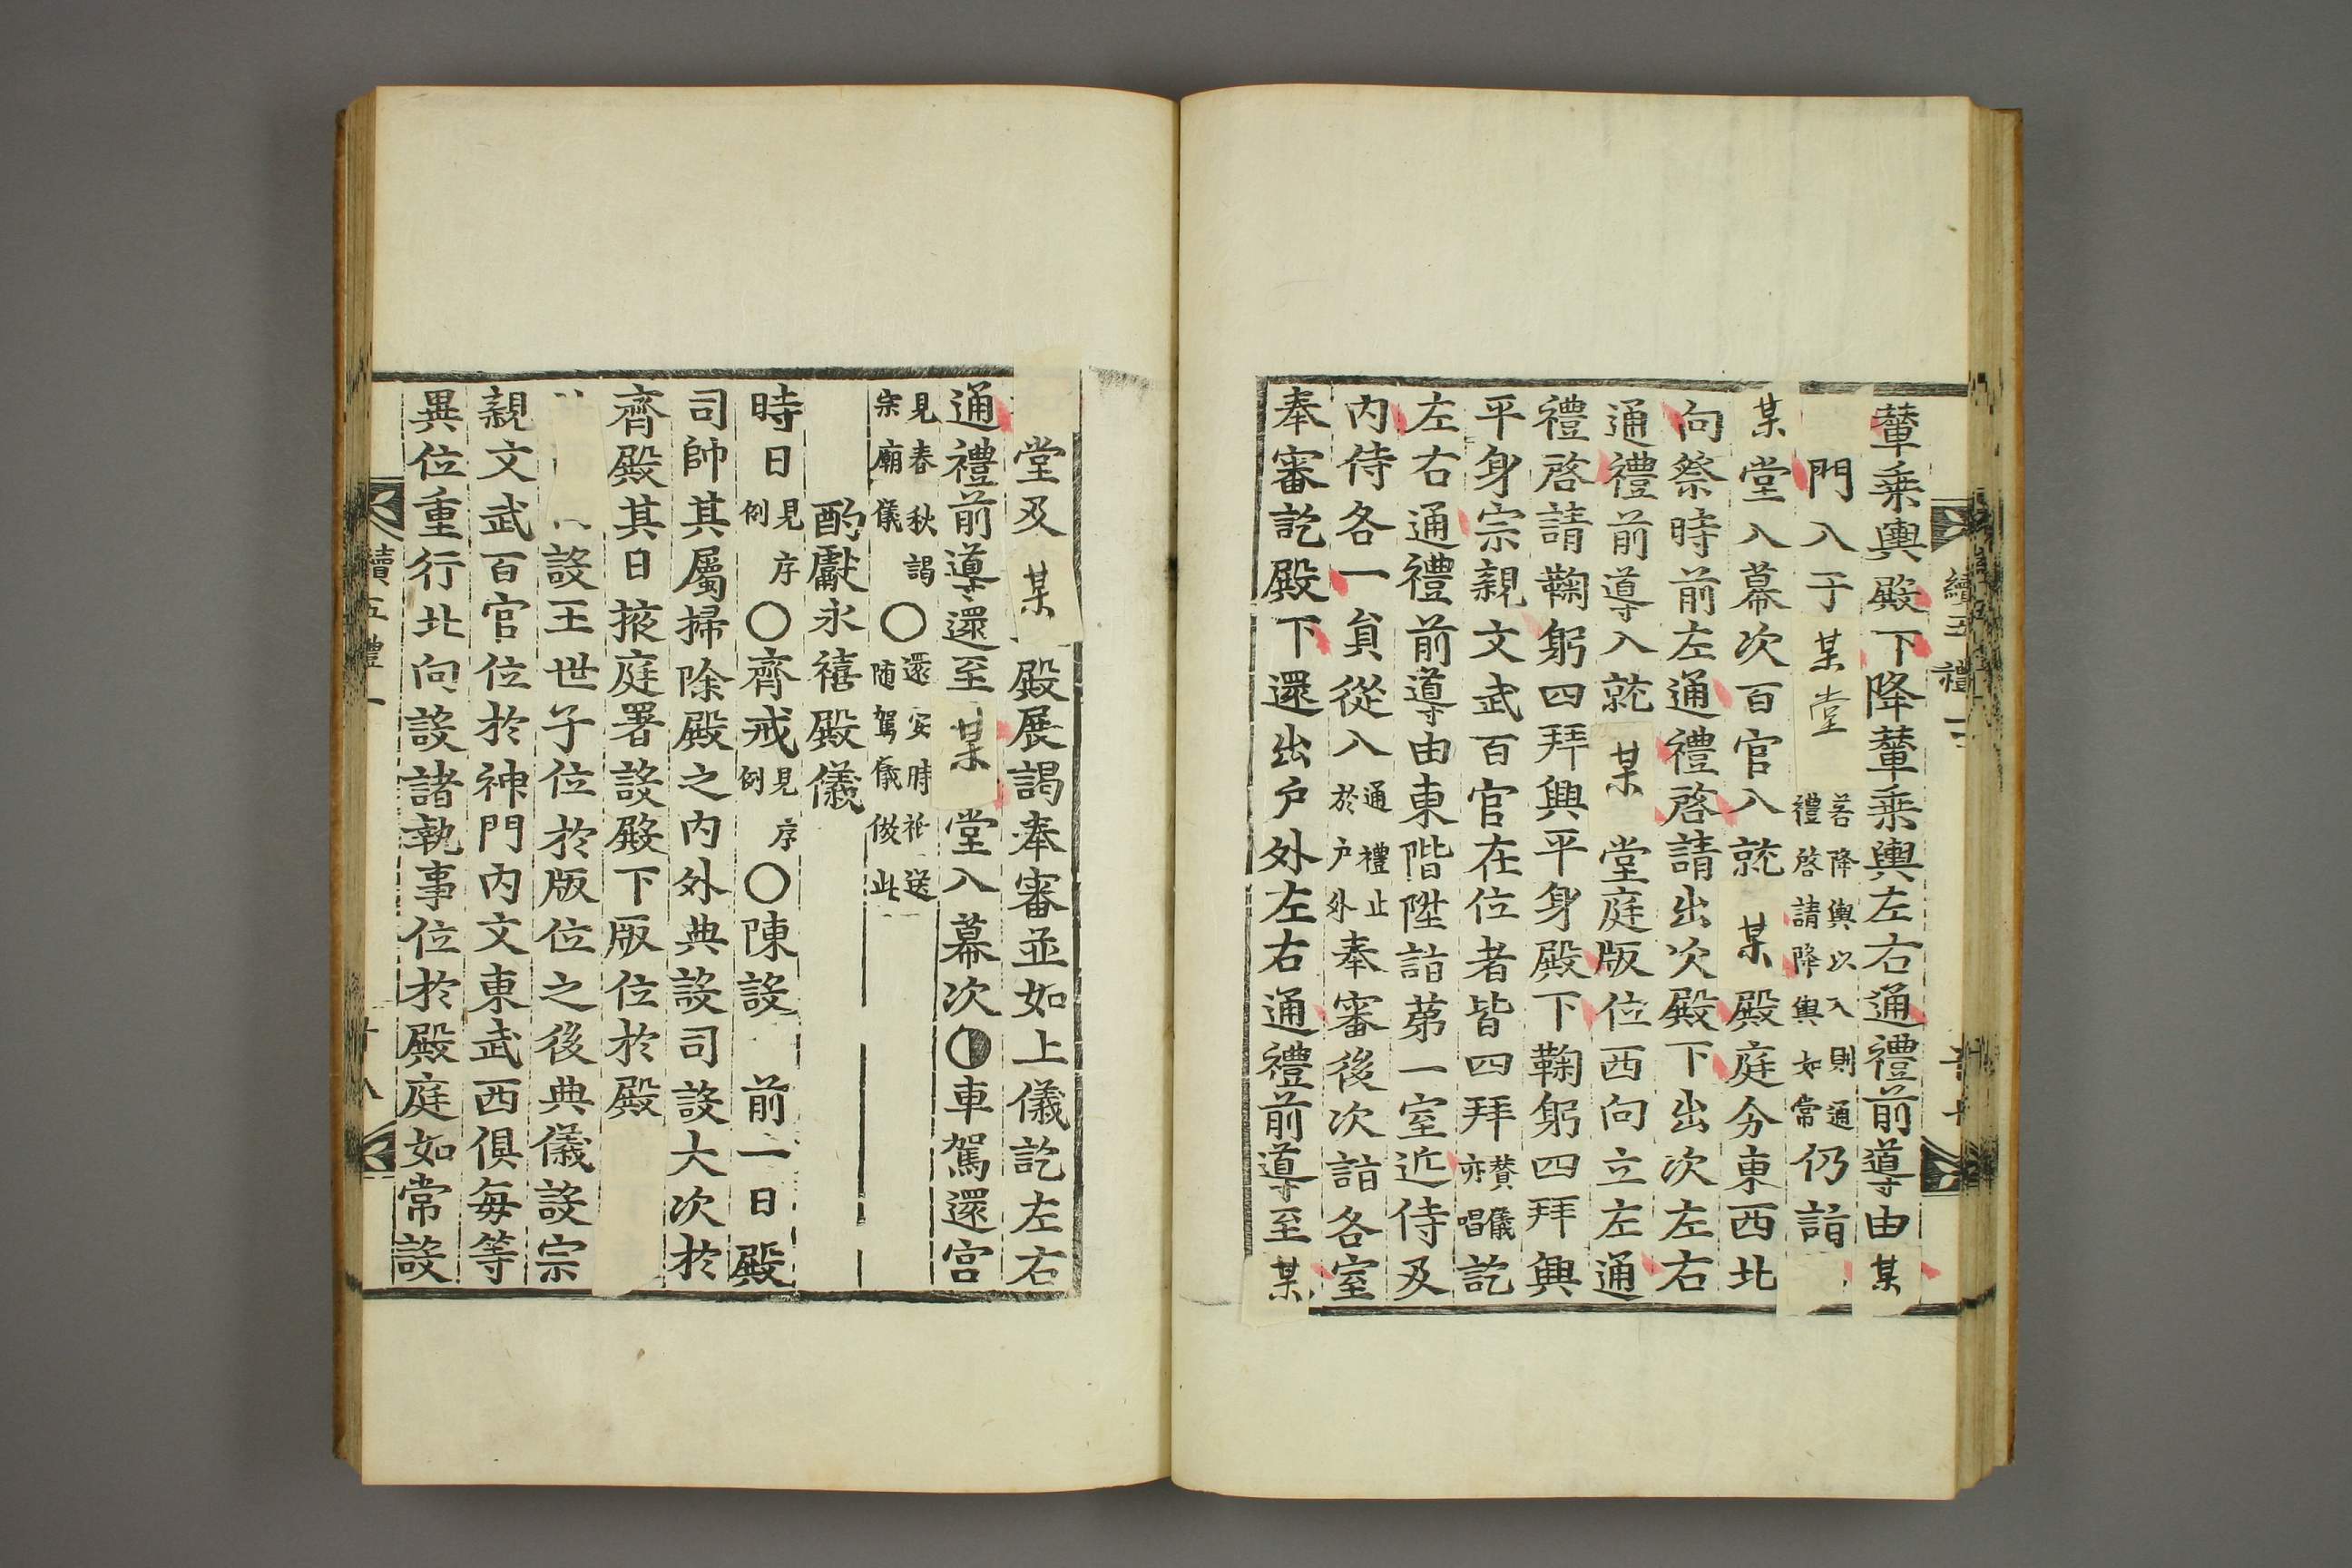 輦乘輿殿下降輦乘輿左右通禮前導由某
門入于某堂若降輿以入則通禮啓請降輿如常仍詣
某堂入幕次百官入就某殿庭分東西北
向祭時前左通禮啓請出次殿下出次左右
通禮前導入就某堂庭版位西向立左通
禮啓請鞠躬四拜興平身殿下鞠躬四拜興
平身宗親文武百官在位者皆四拜贊儀亦唱訖
左右通禮前導由東階陞詣苐一室近侍及
內侍各一員從入通禮止於户外奉審後次詣各室
奉審訖殿下還出户外左右通禮前導至某
堂及某殿展謁奉審並如上儀訖左右
通禮前導還至某堂入幕次◑車駕還宮
見春秋謁宗廟儀○還安時祗送随駕儀倣此
酌獻永禧殿儀
時日見序例○齊戒見序例○陳設前一日殿
司帥其屬掃除殿之內外典設司設大次於
齊殿其日掖庭署設殿下版位於殿
設王世子位於版位之後典儀設宗
親文武百官位於神門內文東武西俱每等
異位重行北向設諸執事位於殿庭如常設
續五禮一
十八